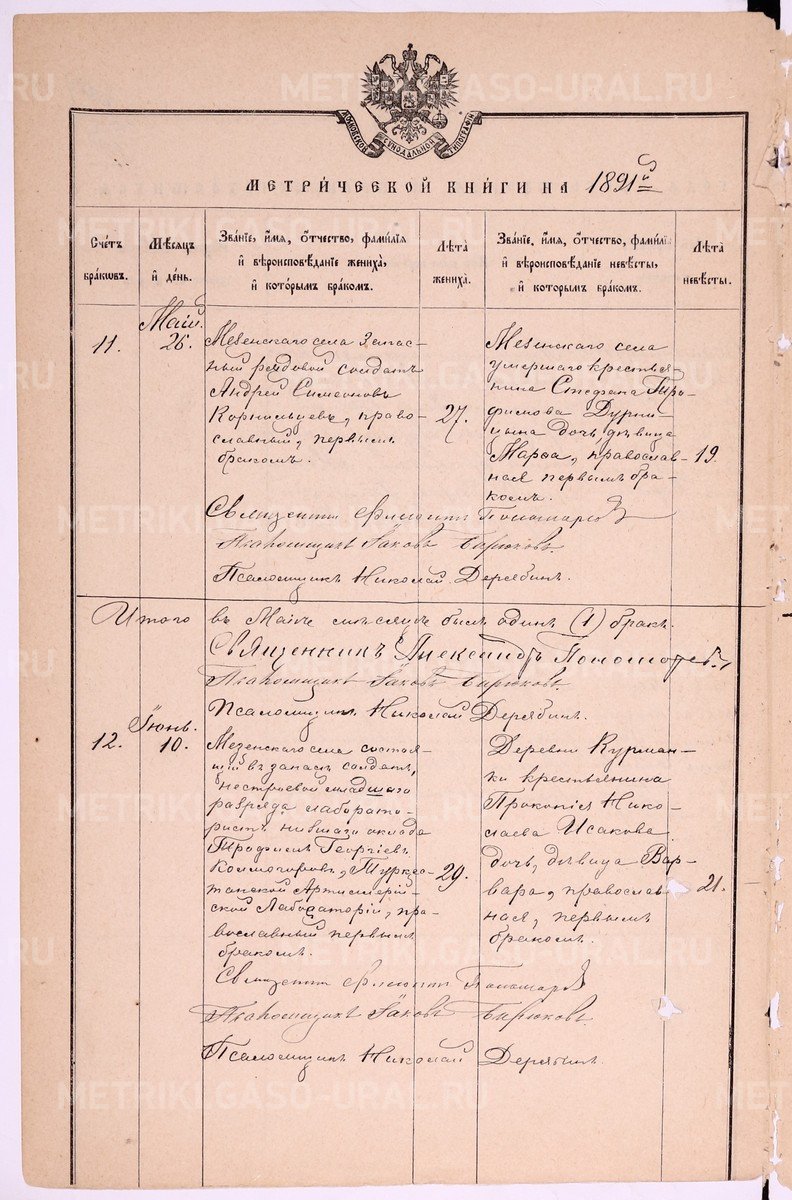 МОСКОВСКОЙ СѴНОДАЛЬНОЙ ТИПОГРАФІИ
МЕТРИ́ЧЕСКОЙ КНИ́ГИ НА 1891й
Сче́тъ бра́кωвъ.
Мѣ́сяцъ и҆ де́нь.
Зва́нїе, и҆́мя, ѻ҆́тчество, фами́лїя
и҆ вѣроисповѣ́данїе жениха̀,
и҆ кото́рымъ бра́комъ.
Лѣ́та жениха̀.
Зва́нїе, и҆́мя, ѻ҆́тчество, фами́лїя
и҆ вѣроисповѣ́данїе невѣ́сты,
и҆ кото́рымъ бра́комъ.
Лѣ́та невѣ́сты.
11.
Маій.
26.
Мезенскаго села Запас-
ный рядовой солдатъ
Андрей Симеоновъ
Корнильцевъ, право-
славный, первымъ
бракомъ.
27.
Мезенскаго села
умершаго крестья-
нина Стефана Тро-
фимова
дочь, дѣвица
Марѳа, православ-
ная первымъ бра-
комъ.
19.
Священникъ Пономаревъ
Іаковъ Бирюковъ.
Псаломщикъ Николай Дерябинъ.
Итого въ Маіѣ мѣсяцѣ былъ одинъ (1) бракъ.
Священникъ Александръ Пономаревъ
Іаковъ Бирюковъ.
Псаломщикъ Николай Дерябинъ.
12.
Іюнь.
10.
Мезенскаго села состоя-
щій въ запасѣ солдатъ,
нестроевой младшаго
разряда лаборато-
ристъ низшаго оклада
Трофимъ Георгіевъ
Космогоровъ, Туркес-
танской Артиллерій-
ской Лабораторіи, пра-
вославный первымъ
бракомъ.
29.
Деревни Курман-
ки крестьянина
Прокопія Нико-
лаева Исакова
дочь, дѣвица Вар-
вара, православ-
ная, первымъ
бракомъ.
21.
Священникъ Пономаревъ
Іаковъ Бирюковъ
Псаломщикъ Николай Дерябинъ.
METRIKI.GASO-URAL.RU